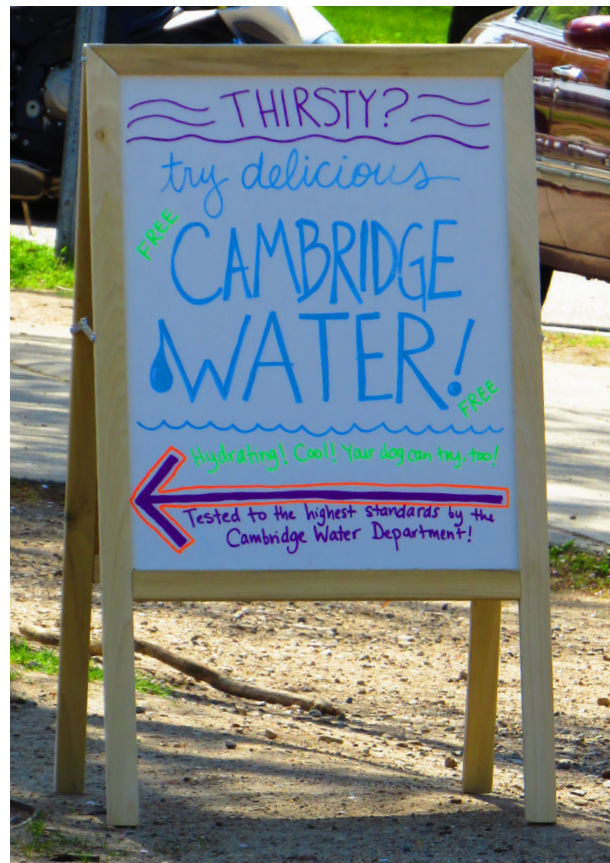 THIRSTY?
try delicious
FREE
CAMBRIDGE
WATER!
FREE
Hydrating! Cool! Your dog can try, too!
Tested to the highest standards by the
Cambridge Water Department!